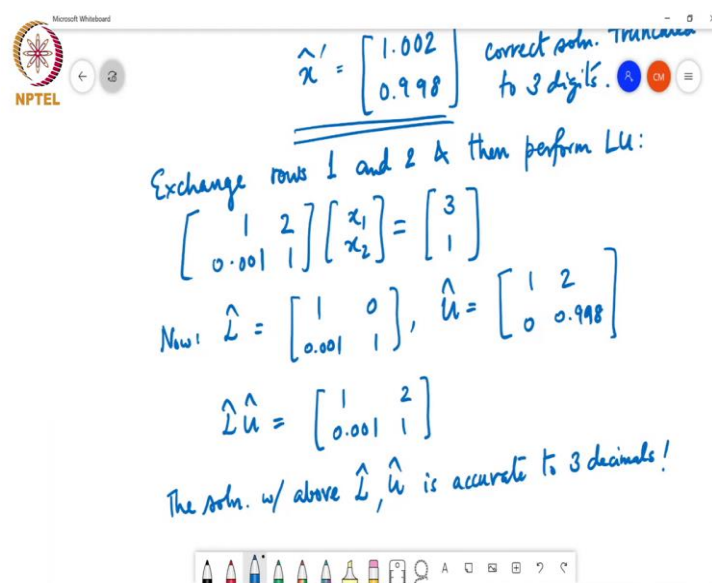 Microsoft Whiteboard
NPTEL
x̂' = [1.002
0.998]
correct soln. Truncated
to 3 digits.
CM
Exchange rows 1 and 2 & then perform LU:
[1 2
0.001 1] [x₁
x₂] = [3
1]
Now: L̂ = [1 0
0.001 1], Û = [1 2
0 0.998]
L̂Û = [1 2
0.001 1]
The soln. w/ above L̂, Û is accurate to 3 decimals!